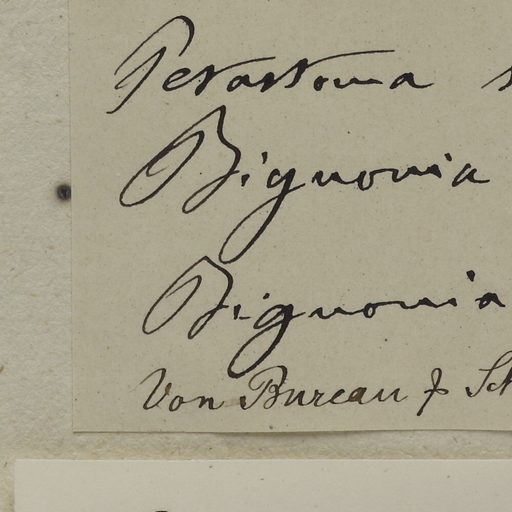 Petastoma
Bignonia
Bignonia
Von Bureau & Sch